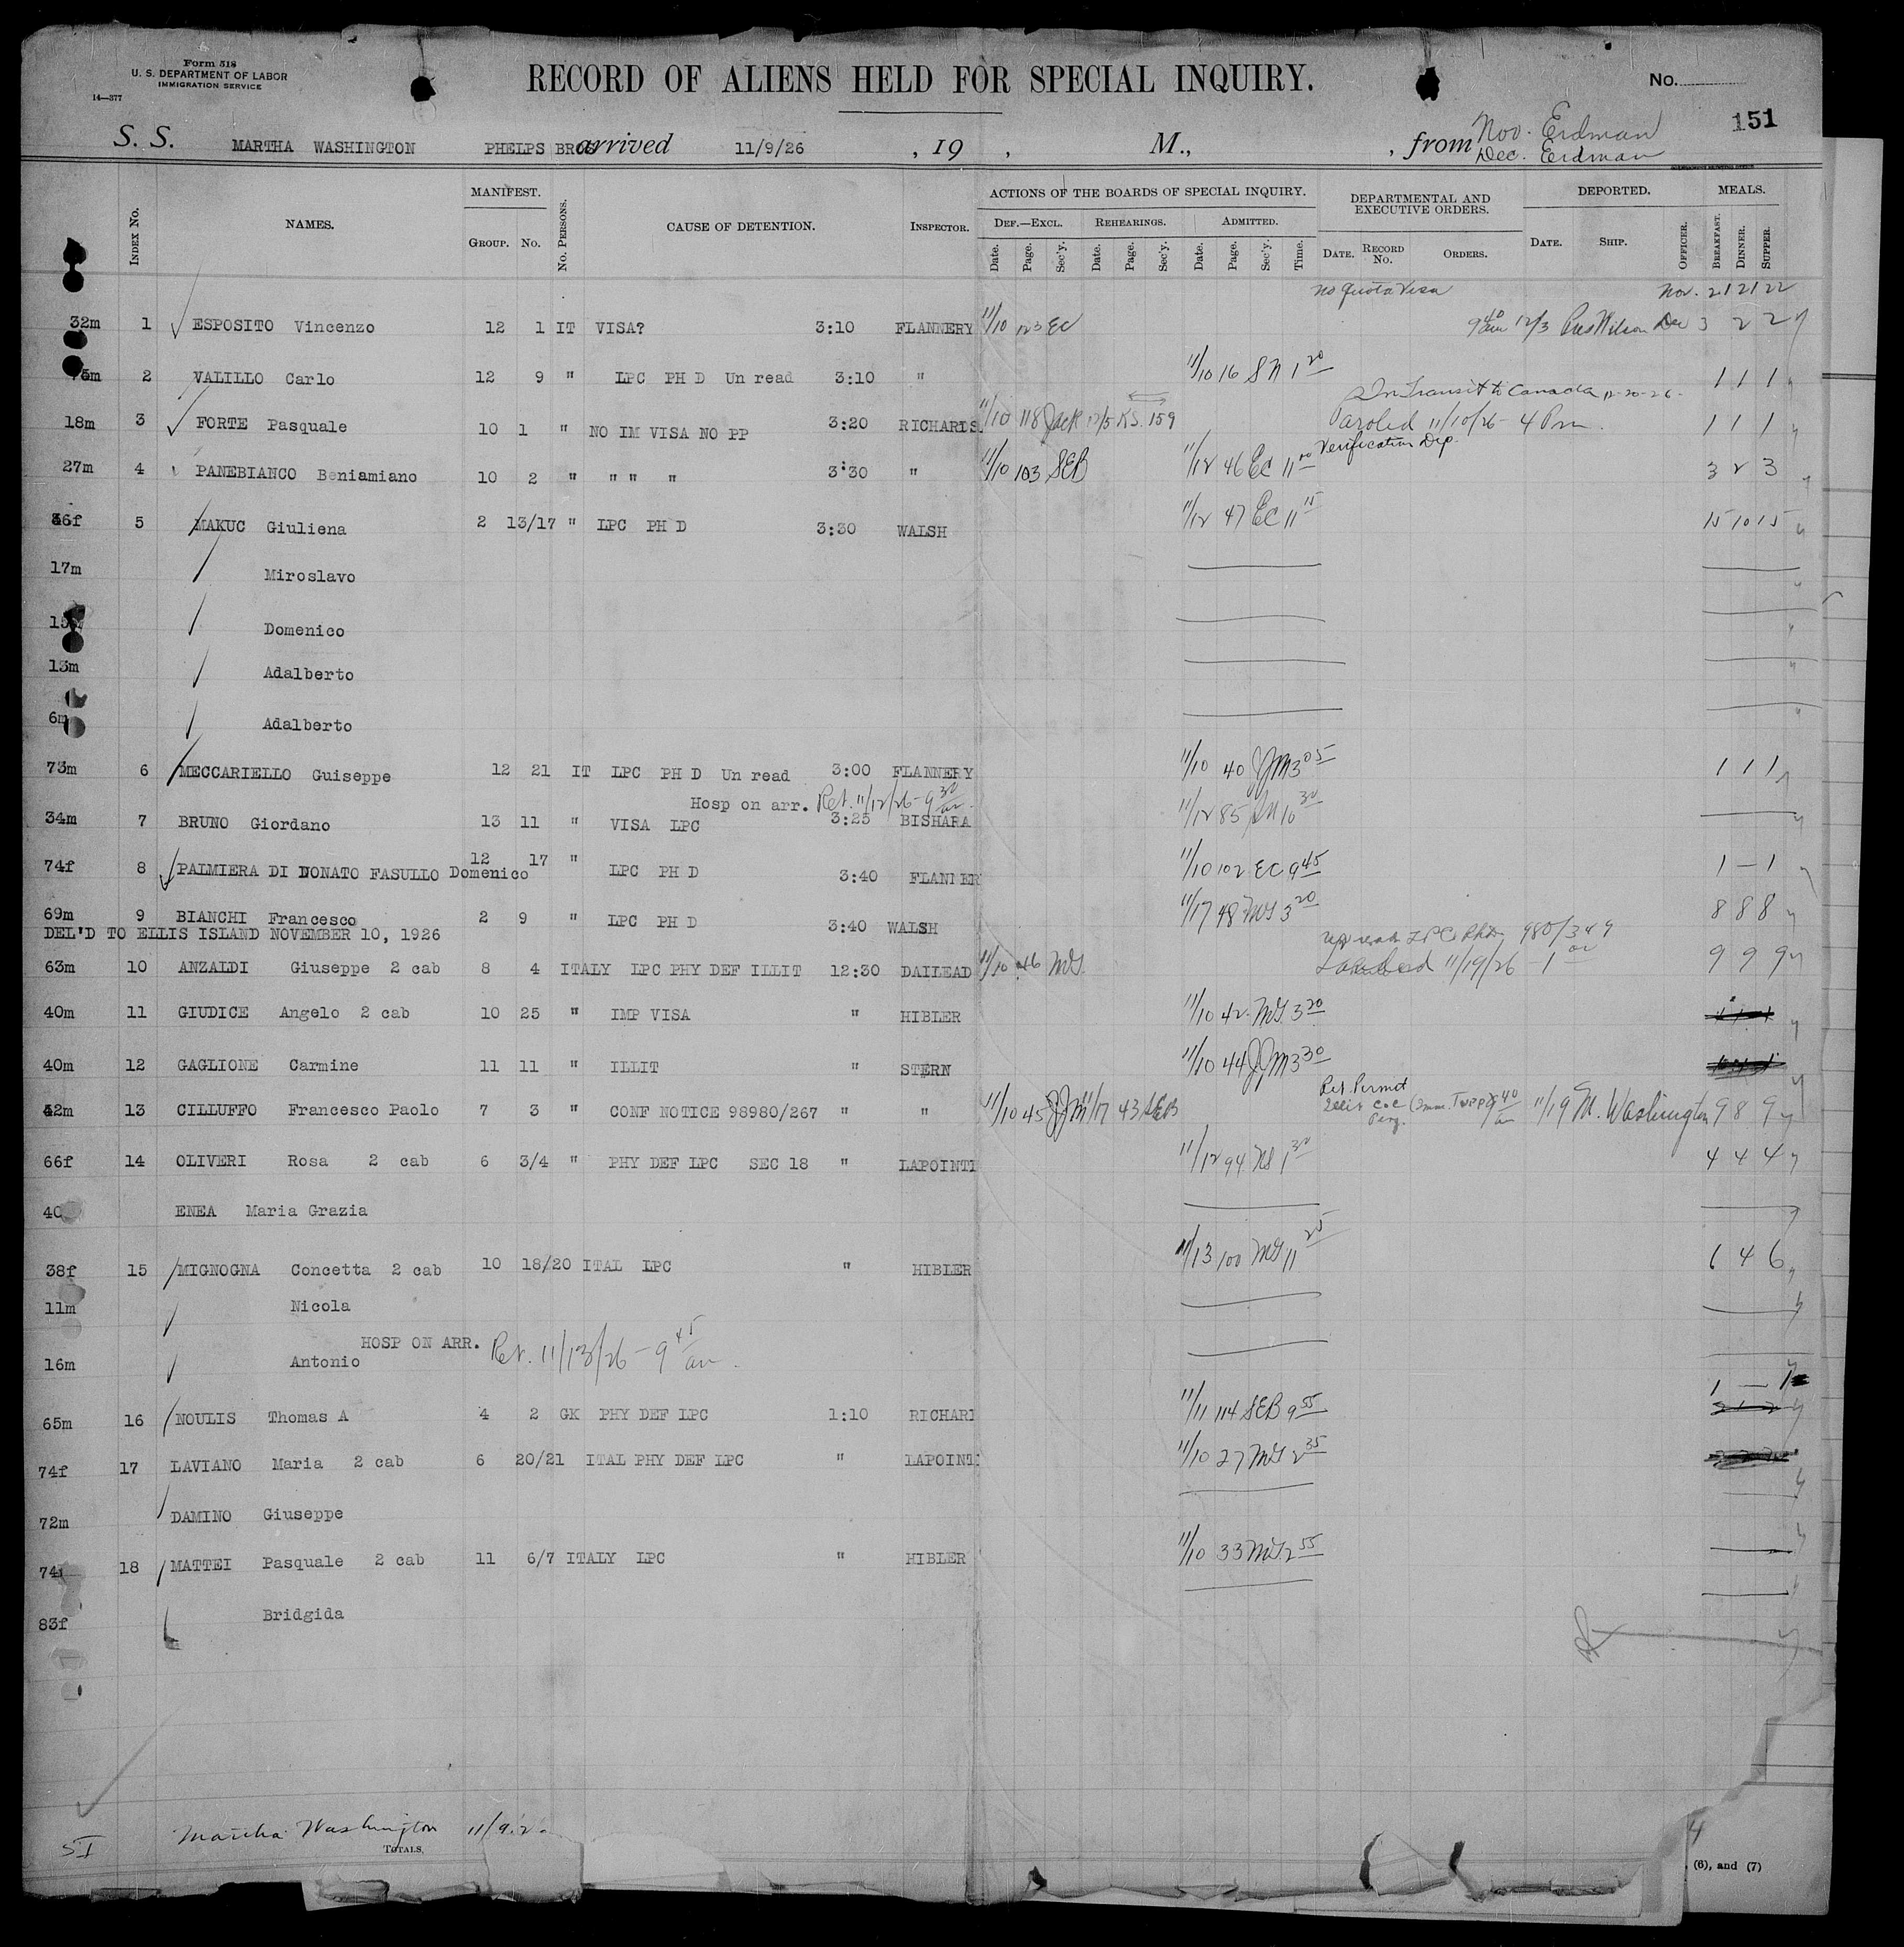 Form 518
U. S. DEPARTMENT OF LABOR
IMMIGRATION SERVICE
14—377
RECORD OF ALIENS HELD FOR SPECIAL INQUIRY.
No.
151
S. S. MARTHA WASHINGTON PHELPS BROS arrived 11/9/26 , 19 , M., , from Nov. Erdman
Dec. Erdman
INDEX No. NAMES. MANIFEST. GROUP. No. No. PERSONS. CAUSE OF DETENTION. INSPECTOR. ACTIONS OF THE BOARDS OF SPECIAL INQUIRY. DEF.—EXCL. REHEARINGS. ADMITTED. DEPARTMENTAL AND EXECUTIVE ORDERS. DEPORTED. MEALS.
Date. Page. Sec'y. Date. Page. Sec'y. Date. Page. Sec'y. Time. DATE. RECORD No. ORDERS. DATE. SHIP. OFFICER. BREAKFAST. DINNER. SUPPER.
No Quota Visa Nov. 21 21 22
32m 1 ESPOSITO Vincenzo 12 1 IT VISA? 3:10 FLANNERY 11/10 123 EC 9 40 am 12/3 Pres Wilson Dec 3 2 2
2 VALILLO Carlo 12 9 " LPC PH D Un read 3:10 " 11/10 16 SN 1 20 1 1 1
In Transit to Canada
18m 3 FORTE Pasquale 10 1 " NO IM VISA NO PP 3:20 RICHARDS 11/10 118 Jack 12/5 KS. 159 Paroled 11/10/26 - 4 Pm. 1 1 1
Verification Dep.
27m 4 PANEBIANCO Beniamiano 10 2 " " " " 3:30 " 11/10 103 SEB 11/12 46 EC 11 00 3 2 3
5 MAKUC Giuliena 2 13/17 " LPC PH D 3:30 WALSH 11/12 47 EC 11 15 15 10 15
17m Miroslavo
Domenico
13m Adalberto
6m Adalberto
73m 6 MECCARIELLO Guiseppe 12 21 IT LPC PH D Un read 3:00 FLANNERY 11/10 40 JJM 3 05 1 1 1
Hosp on arr. Ret. 11/12/26 - 9 30 am.
34m 7 BRUNO Giordano 13 11 " VISA LPC 3:25 BISHARA 11/12 85 SN 10 30
74f 8 PALMIERA DI DONATO FASULLO Domenico 12 17 " LPC PH D 3:40 FLANNER 11/10 102 EC 9 45 1 — 1
69m 9 BIANCHI Francesco 2 9 " LPC PH D 3:40 WALSH 11/17 48 MG 3 20 8 8 8
DEL'D TO ELLIS ISLAND NOVEMBER 10, 1926
LPC 980/349
63m 10 ANZALDI Giuseppe 2 cab 8 4 ITALY LPC PHY DEF ILLIT 12:30 DAILEAD 11/10 46 MG. 11/19/26 - 1 9 9 9
40m 11 GIUDICE Angelo 2 cab 10 25 " IMP VISA " HIBLER 11/10 42 MG. 3 20
40m 12 GAGLIONE Carmine 11 11 " ILLIT " STERN 11/10 44 JJM 3 30
Ret. Permit
42m 13 CILLUFFO Francesco Paolo 7 3 " CONF NOTICE 98980/267 " " 11/10 45 JJM 11/17 43 SEB 9 40 am 11/19 M. Washington 9 8 9
66f 14 OLIVERI Rosa 2 cab 6 3/4 " PHY DEF LPC SEC 18 " LAPOINTE 11/12 94 NS 1 30 4 4 4
40 ENEA Maria Grazia
38f 15 MIGNOGNA Concetta 2 cab 10 18/20 ITAL LPC " HIBLER 11/13 100 MG 11 25 6 4 6
11m Nicola
HOSP ON ARR. Ret. 11/13/26 - 9 45 am.
16m Antonio
1 — 1
65m 16 NOULIS Thomas A 4 2 GK PHY DEF LPC 1:10 RICHARD 11/11 114 SEB 9 55
74f 17 LAVIANO Maria 2 cab 6 20/21 ITAL PHY DEF LPC " LAPOINT 11/10 27 MG 2 35
72m DAMINO Giuseppe
74 18 MATTEI Pasquale 2 cab 11 6/7 ITALY LPC " HIBLER 11/10 33 MG 2 55
83f Bridgida
Martha Washington
SI
TOTALS
4
(6), and (7)